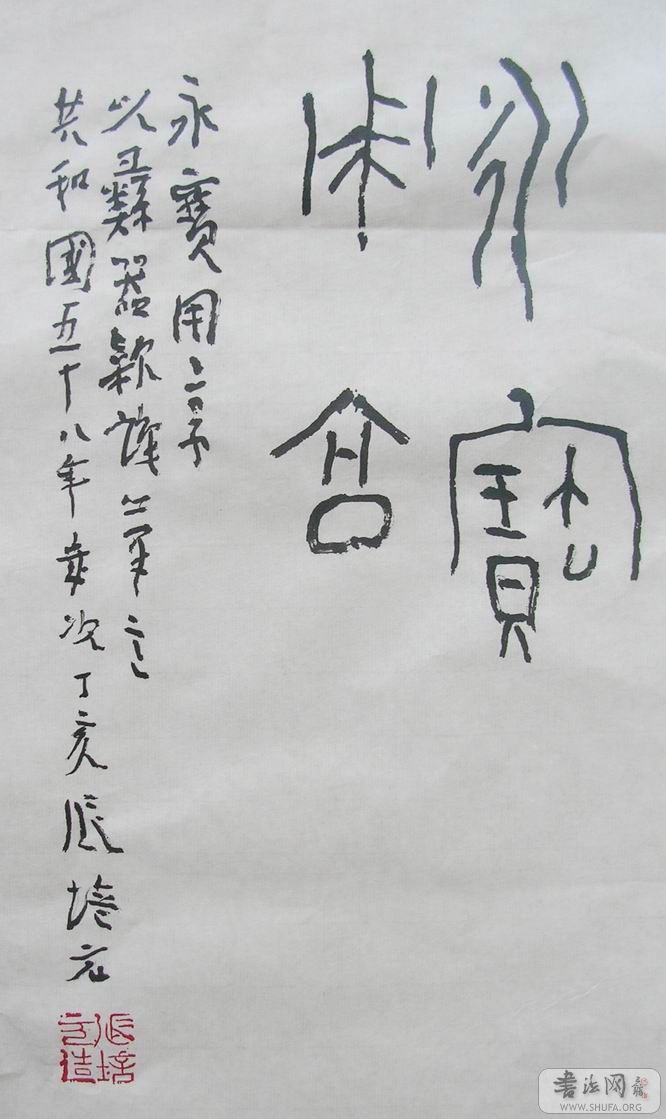 永寶
用享
永寶用享
以彝器款識筆之
共和國五十八年歲次丁亥張培元
張培
元造
书法网
WWW.SHUFA.ORG